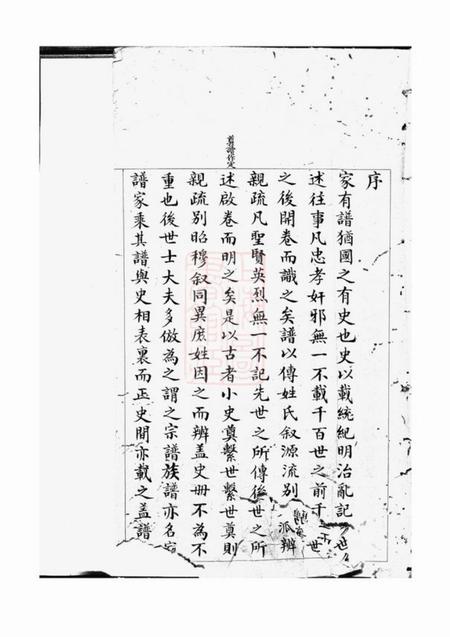 序
家有譜猶國之有史也史以載統紀明治亂記世
述往事凡忠孝奸邪無一不載千百世之前千世
之後開卷而識之矣譜以傳姓氏叙源流别派辨
親疏凡聖賢英烈無一不記先世之所傳後世之所
述啟卷而明之矣是以古者小史奠繫世繫世奠則
親疏别昭穆叙同異庶姓因之而辨盖史册不為不
重也後世士大夫多倣為之謂之宗譜族譜亦名家
譜家乘其譜與史相表裏而正史間亦載之盖譜